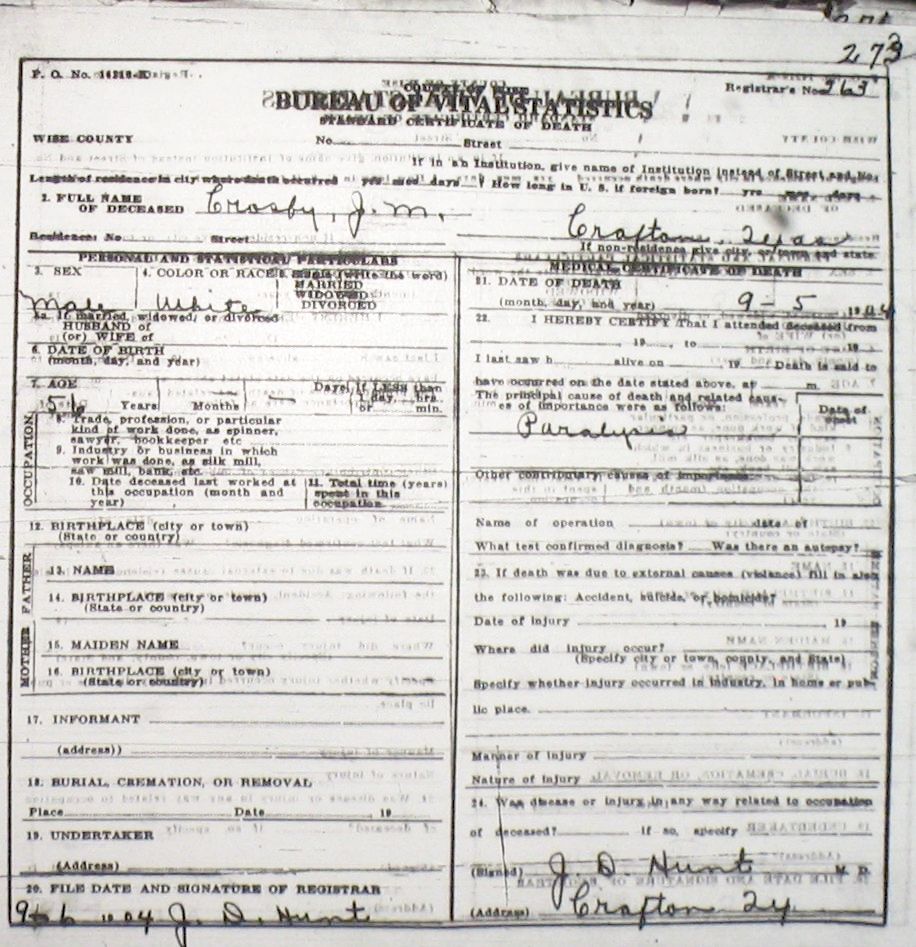 273
P. O. No.
Registrar's No. 263
COUNTY OF WISE
BUREAU OF VITAL STATISTICS
STANDARD CERTIFICATE OF DEATH
WISE COUNTY No. Street
If in an Institution, give name of Institution instead of Street and No.
Length of residence in city where death occurred yrs mos days ? How long in U. S. if foreign born? yrs mos days
2. FULL NAME
OF DECEASED Crosby, J. M.
Crafton, Texas
Residence: No Street
If non-residence give city, or town and state
PERSONAL AND STATISTICAL PARTICULARS
3. SEX
Male
4. COLOR OR RACE
White
5. Single (write the word)
MARRIED
WIDOWED
DIVORCED
5a. If married, widowed, or divorced
HUSBAND of
(or) WIFE of
6. DATE OF BIRTH
(month, day, and year)
7. AGE
56 Years Months Days If LESS than
1 day, hrs.
or min.
OCCUPATION
8. Trade, profession, or particular
kind of work done, as spinner,
sawyer, bookkeeper etc
9. Industry or business in which
work was done, as silk mill,
saw mill, bank, etc.
10. Date deceased last worked at
this occupation (month and
year)
11. Total time (years)
spent in this
occupation
12. BIRTHPLACE (city or town)
(State or country)
FATHER
13. NAME
14. BIRTHPLACE (city or town)
(State or country)
MOTHER
15. MAIDEN NAME
16. BIRTHPLACE (city or town)
(State or country)
17. INFORMANT
(address))
18. BURIAL, CREMATION, OR REMOVAL
Place Date 19
19. UNDERTAKER
(Address)
20. FILE DATE AND SIGNATURE OF REGISTRAR
9-6 1904 J. D. Hunt
MEDICAL CERTIFICATE OF DEATH
21. DATE OF DEATH
(month, day, and year) 9-5 1904
22. I HEREBY CERTIFY That I attended deceased from
19 , to 19
I last saw h alive on , 19 Death is said to
have occurred on the date stated above, at m.
The principal cause of death and related caus-
es of importance were as follows:
Date of
onset
Paralysis
Other contributory causes of importance
Name of operation date of
What test confirmed diagnosis? Was there an autopsy?
23. If death was due to external causes (violence) fill in also
the following: Accident, suicide, or homicide?
Date of injury 19
Where did injury occur?
(Specify city or town, county, and State)
Specify whether injury occurred in industry, in home or pub-
lic place.
Manner of injury
Nature of injury
24. Was disease or injury in any way related to occupation
of deceased? If so, specify
(Signed) J. D. Hunt M D
(Address) Crafton